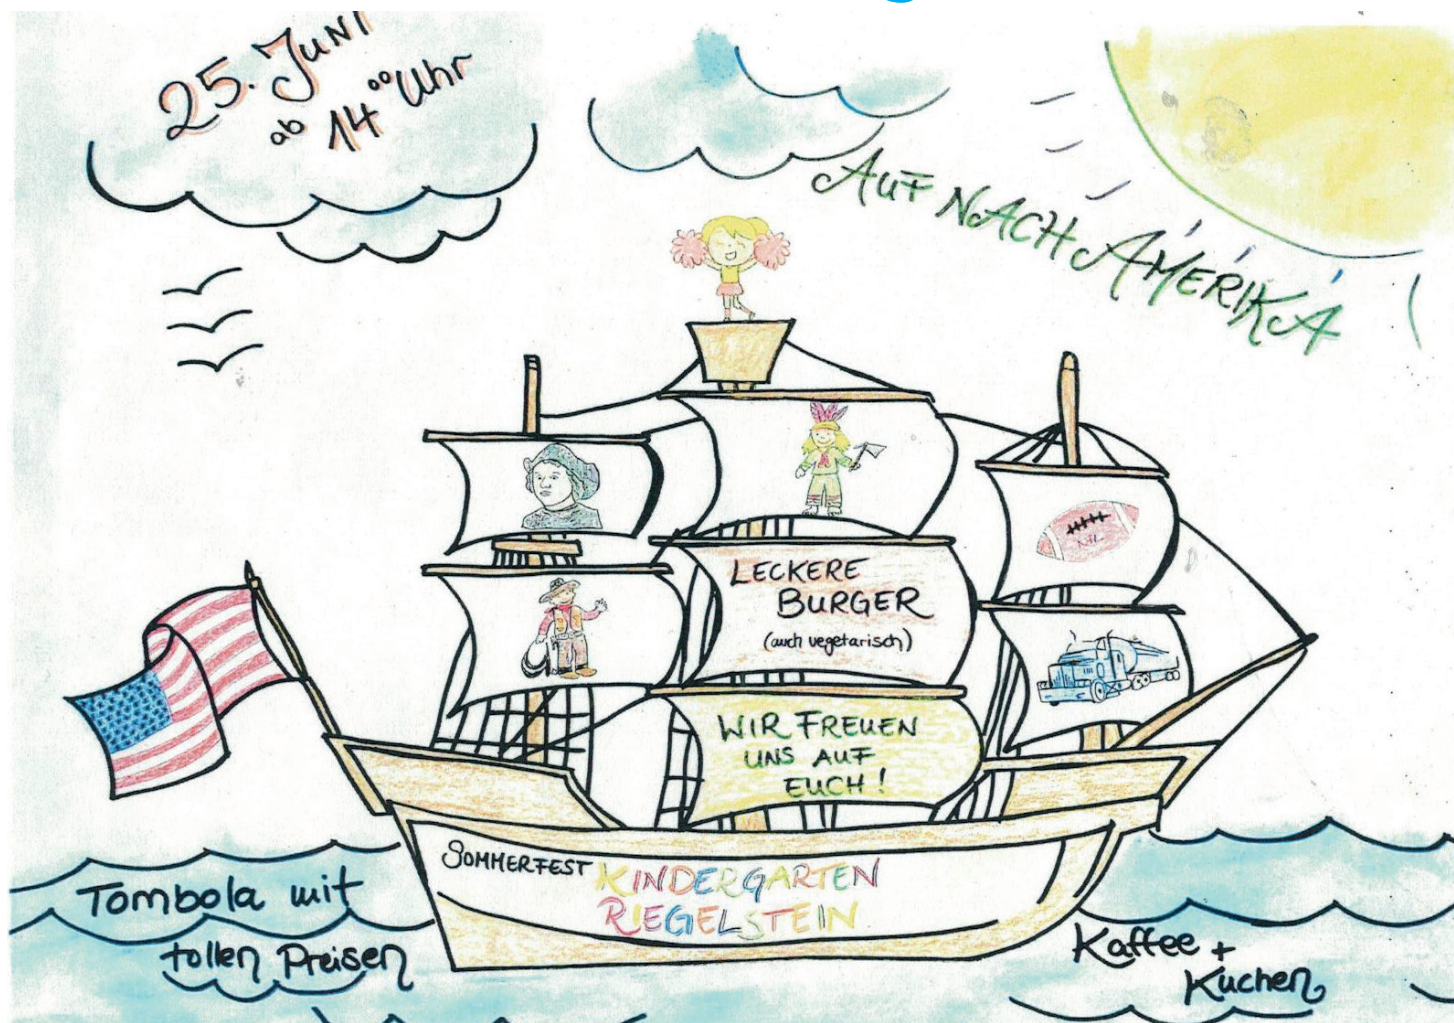 25. JUNI
ab 14⁰⁰ Uhr
AUF NACH AMERIKA
LECKERE
BURGER
(auch vegetarisch)
NFL
WIR FREUEN
UNS AUF
EUCH!
SOMMERFEST KINDERGARTEN
RIEGELSTEIN
Tombola mit
tollen Preisen
Kaffee +
Kuchen